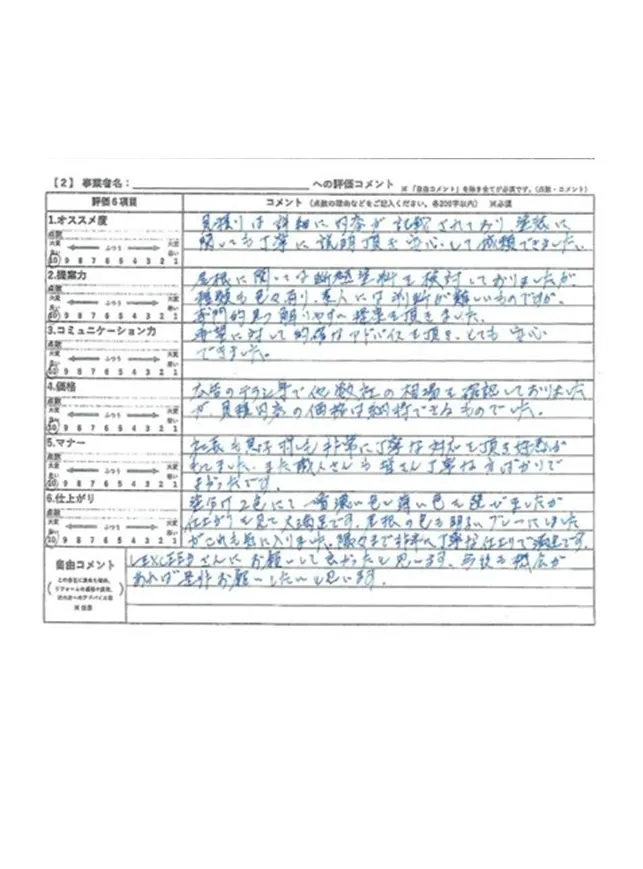 【2】事業者名： への評価コメント ※「自由コメント」を除き全てが必須です。（点数・コメント）
評価6項目 コメント（点数の理由などをご記入ください。各200字以内） ※必須
1.オススメ度
点数
大変良い ふつう 大変悪い
10 9 8 7 6 5 4 3 2 1
見積りは詳細に内容が記載されており塗装に
関しても丁寧に説明頂き安心して依頼できました。
2.提案力
点数
大変良い ふつう 大変悪い
10 9 8 7 6 5 4 3 2 1
屋根に関しては断熱塗料を検討しておりましたが
種類も色々有り、素人には判断が難しいものですが、
専門的見解から提案を頂きました。
3.コミュニケーション力
点数
大変良い ふつう 大変悪い
10 9 8 7 6 5 4 3 2 1
希望に対して的確なアドバイスを頂き、とても安心
できました。
4.価格
点数
大変良い ふつう 大変悪い
10 9 8 7 6 5 4 3 2 1
広告のチラシ等で他数社の相場を確認しておりました
が、見積内容の価格は納得できるものでした。
5.マナー
点数
大変良い ふつう 大変悪い
10 9 8 7 6 5 4 3 2 1
社長も 非常に丁寧な対応を頂き好感が
もてました。また職人さんも皆さん丁寧な方ばかりで
です。
6.仕上がり
点数
大変良い ふつう 大変悪い
10 9 8 7 6 5 4 3 2 1
塗分け2色にて一番濃い色と薄い色を選びましたが
仕上がりを見て大満足です。屋根の色も明るいグレーにしました
がこれも気に入りました。隅々まで非常に丁寧な仕上りで満足です。
自由コメント
※任意
LEXCEEDさんにお願いして良かったと思います。今後も機会が
あれば是非お願いしたいと思います。